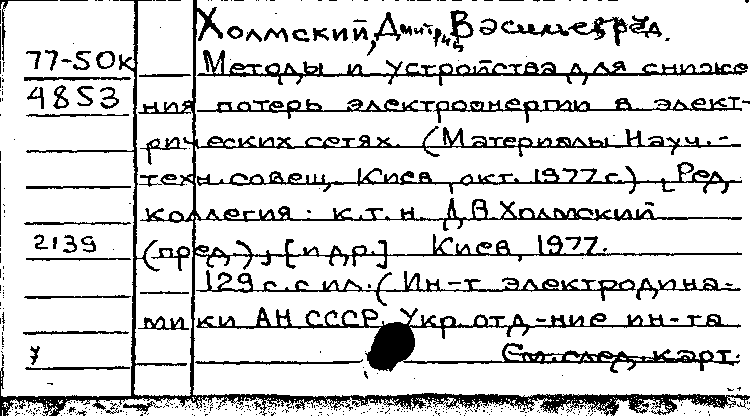 Холмский, Дмитрий Васильев ред.
77-50к Методы и устройства для сниже
4853 ния потерь электроэнергии в элект-
рических сетях. (Материалы Науч.-
техн. совещ, Киев, окт. 1977 г.) [Ред
коллегия: к.т.н. Д.В. Холмский
2139 (пред.), [и др.] Киев, 1977.
129 с. с ил. (Ин-т электродина-
мики АН СССР. Укр. отд-ние ин-та
См. след. карт.